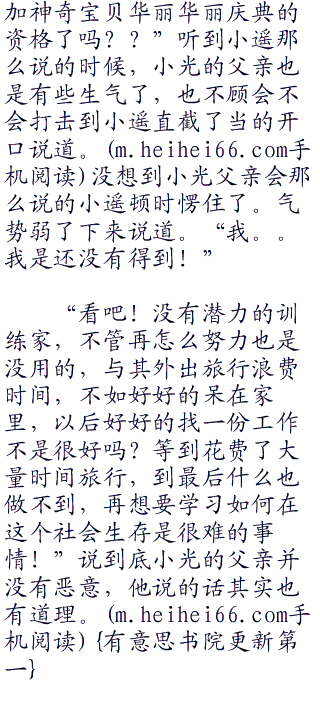 加神奇宝贝华丽华丽庆典的
资格了吗？？”听到小遥那
么说的时候，小光的父亲也
是有些生气了，也不顾会不
会打击到小遥直截了当的开
口说道。(m.heihei66.com手
机阅读)没想到小光父亲会那
么说的小遥顿时愣住了。气
势弱了下来说道。“我。。
我是还没有得到！”
“看吧！没有潜力的训
练家，不管再怎么努力也是
没用的，与其外出旅行浪费
时间，不如好好的呆在家
里，以后好好的找一份工作
不是很好吗？等到花费了大
量时间旅行，到最后什么也
做不到，再想要学习如何在
这个社会生存是很难的事
情！”说到底小光的父亲并
没有恶意，他说的话其实也
有道理。(m.heihei66.com手
机阅读){有意思书院更新第
一}